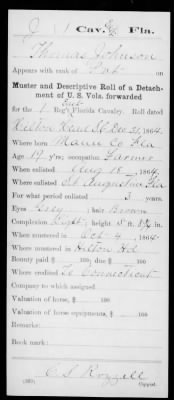 J | Cav. | Fla.
Thomas Johnson
Appears with rank of Pvt on
Muster and Descriptive Roll of a Detach-
ment of U. S. Vols. forwarded
for the 1 East Reg't Florida Cavalry. Roll dated
Hilton Head S C Dec 31, 1864.
Where born Co Fla
Age 19 y'rs; occupation Farmer
When enlisted Aug 18, 1864.
Where enlisted St Augustine Fla
For what period enlisted 3 years.
Eyes Grey; hair Brown
Complexion Light; height 5 ft. in.
When mustered in Oct 4, 1864.
Where mustered in Hilton Hd
Bounty paid $ 100; due $ 100
Where credited To Connecticut
Company to which assigned
Valuation of horse, $ 100
Valuation of horse equipments, $ 100
Remarks:
Book mark:
(339) C S Rozzell
Copyist.